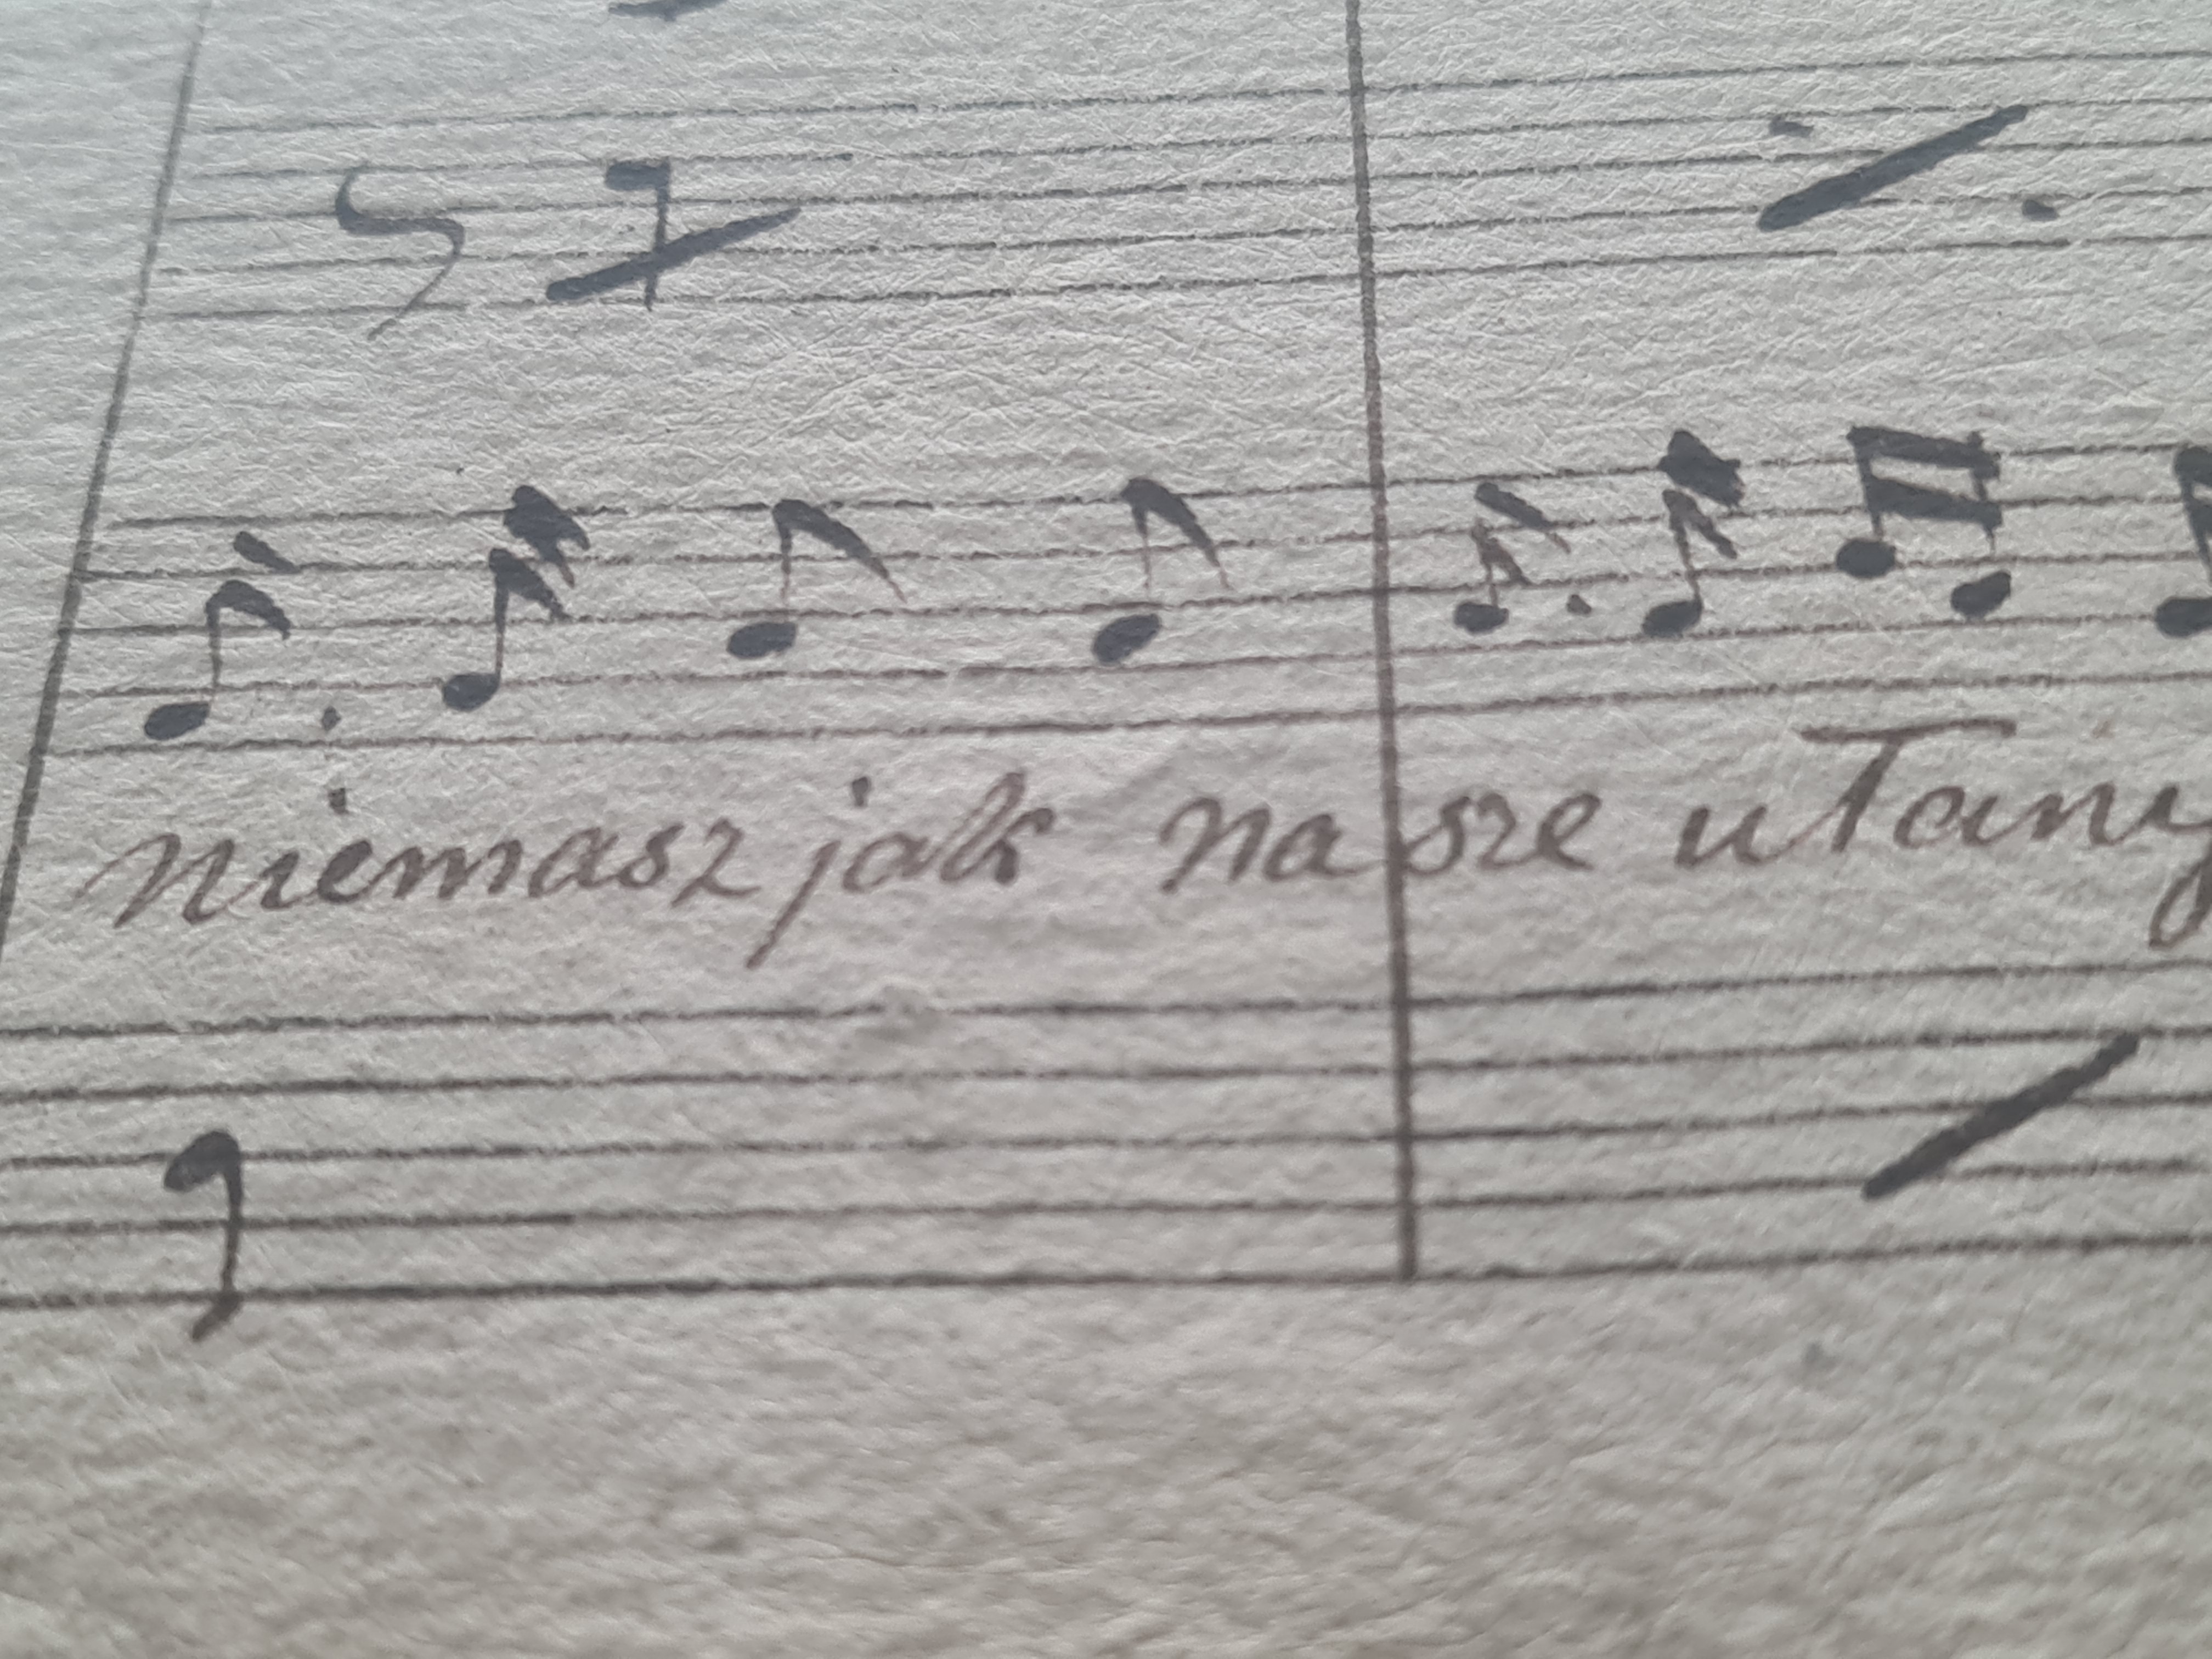 niemasz jak nasze ułany